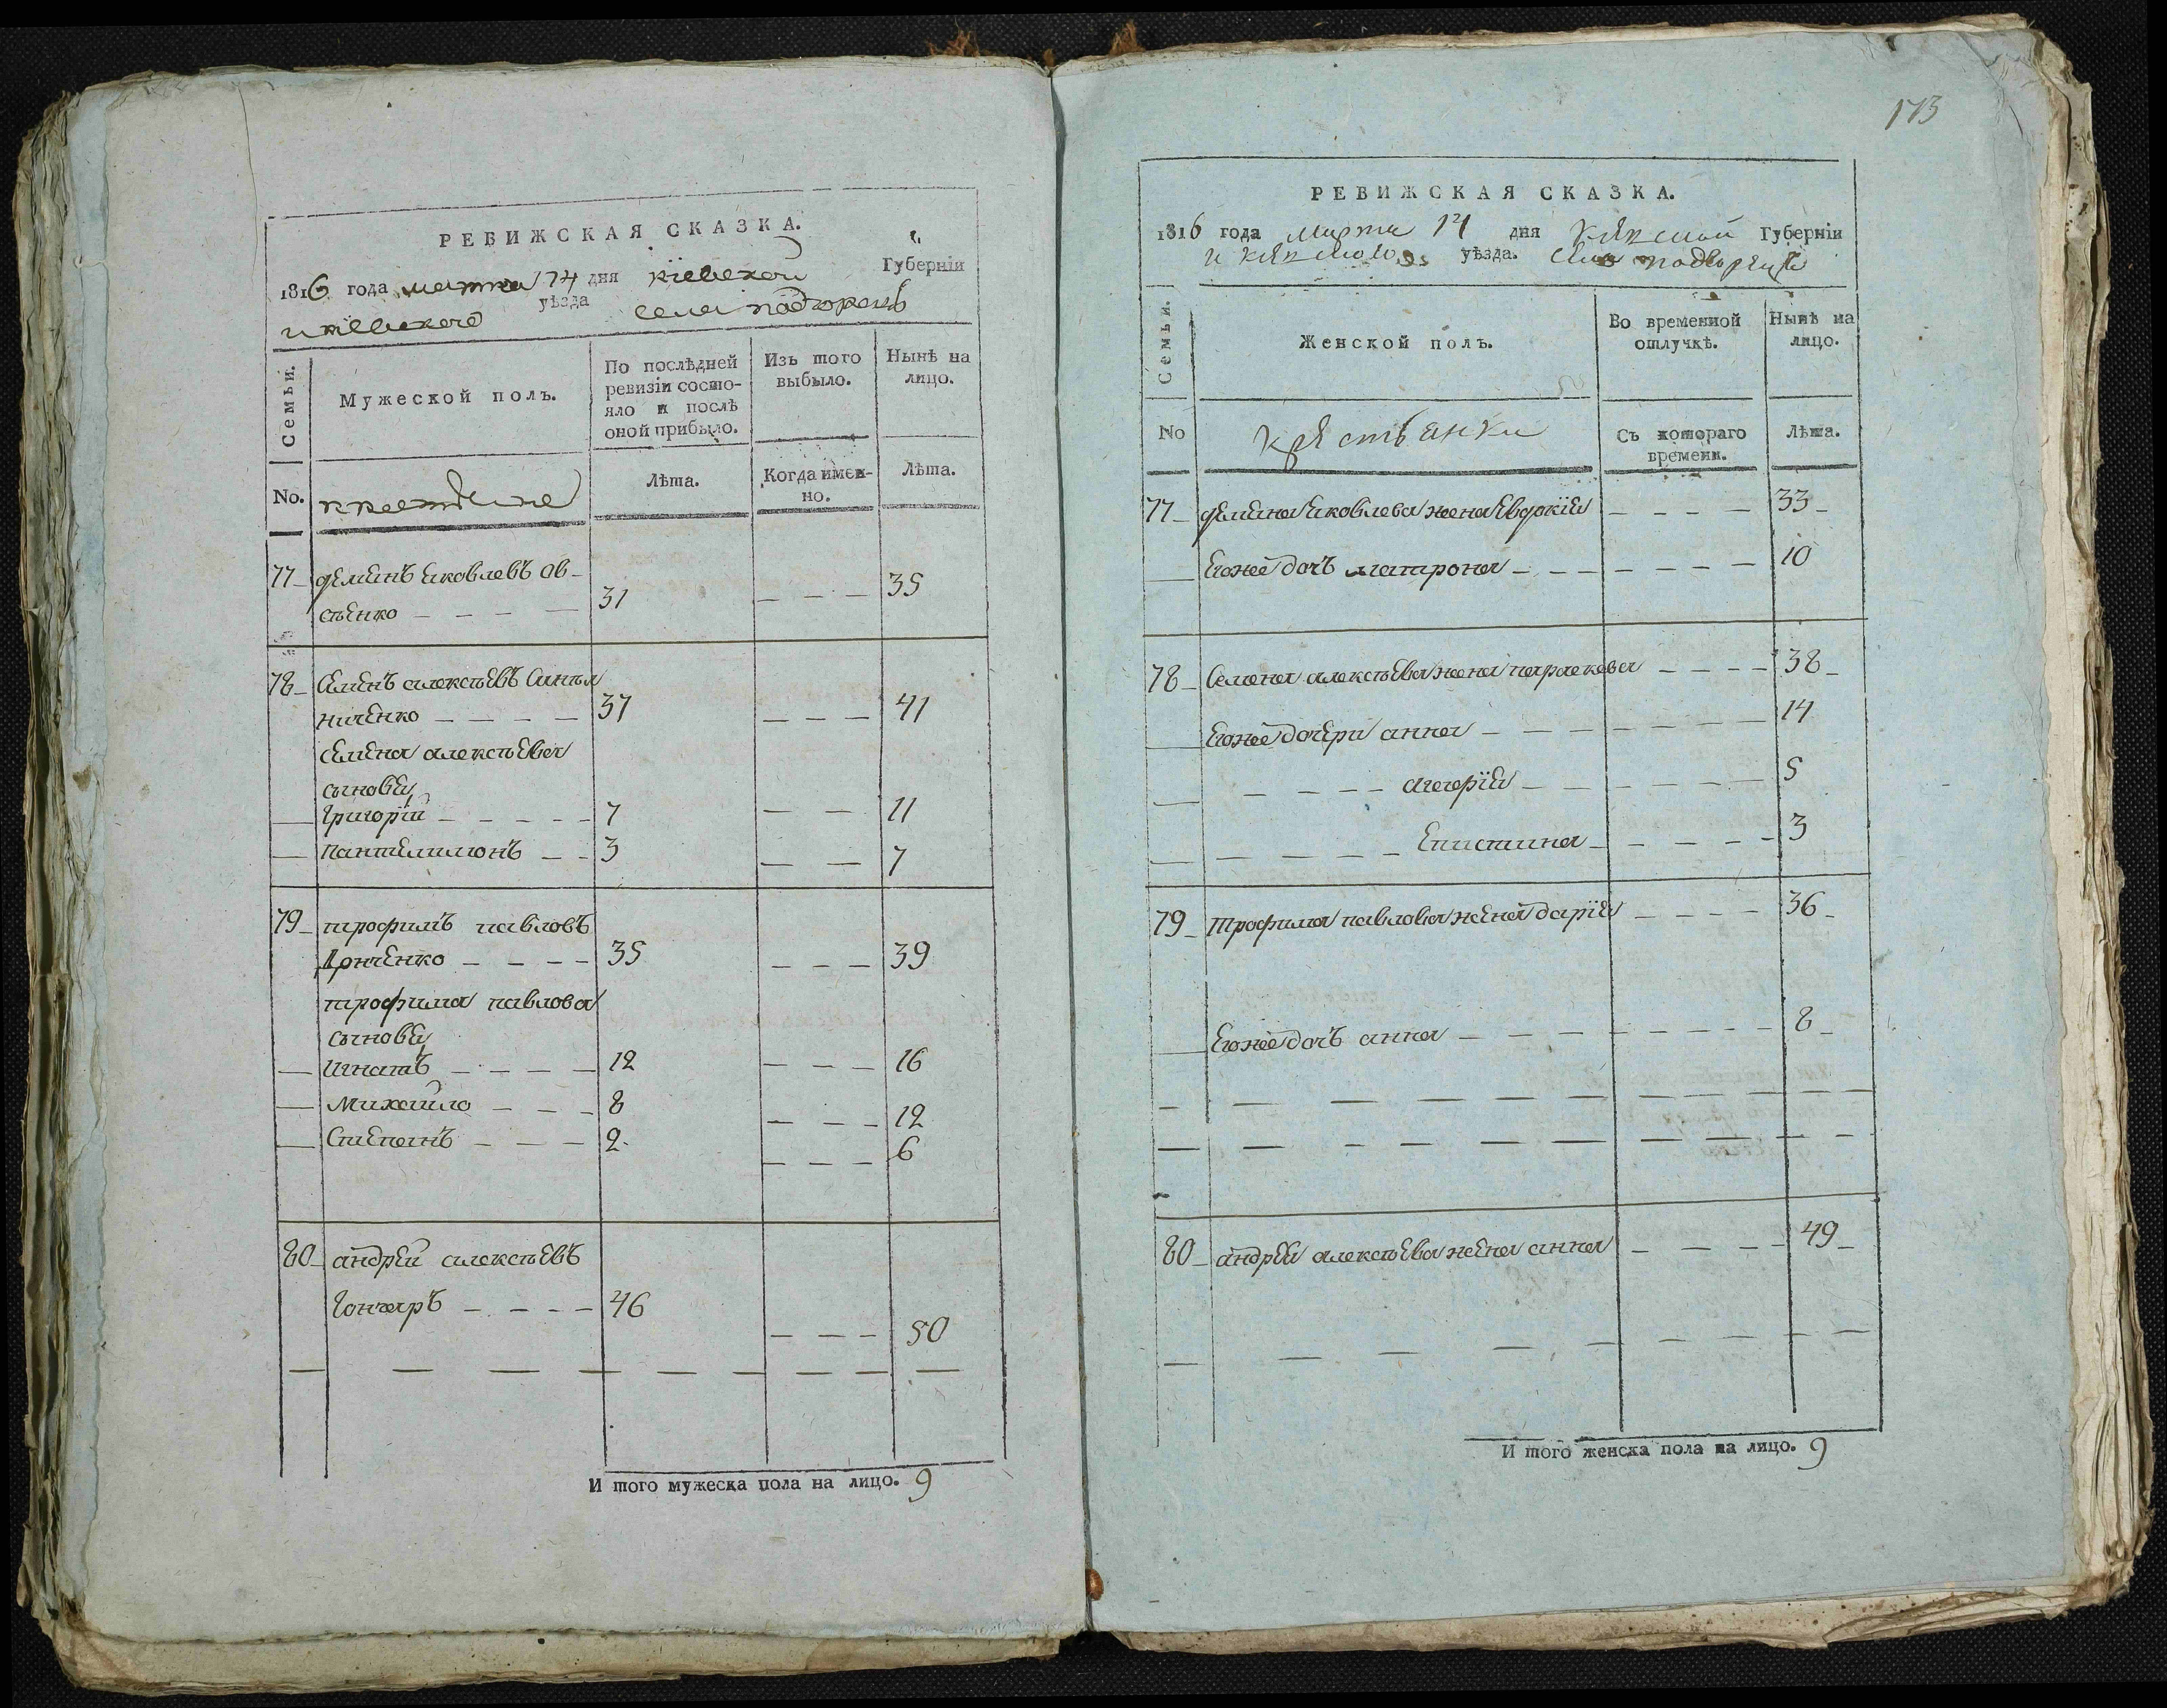 РЕВИЖСКАЯ СКАЗКА.
1816 года марта 14 дня кіевской Губерніи
и кіевского уѣзда села подгорецъ
Семьи.
Мужеской полъ.
По послѣдней ревизіи состо-
яло и послѣ оной прибыло.
Изъ того выбыло.
Нынѣ на лицо.
No. крестьяне
Лѣта.
Когда имен-
но.
Лѣта.
77 демьянъ яковлевъ Ов-
сѣенко 31 35
78 Семенъ алексѣевъ
ниченко 37 41
семена алексѣева
сыновья
Григорій 7 11
пантелимонъ 3 7
79 трофимъ павловъ
35 39
трофима павлова
сыновья
игнатъ 12 16
михайло 8 12
Степанъ 2 6
80 андрей алексѣевъ
Гончаръ 46 50
И того мужеска пола на лицо. 9
173
РЕВИЖСКАЯ СКАЗКА.
1816 года марта 14 дня Губерніи
уѣзда. села
Семьи.
Женской полъ.
Во временной отлучкѣ.
Нынѣ на лицо.
No
крестьянки
Съ котораго времени.
Лѣта.
77 демьяна яковлева жена Евдокія 33
Егожее дочь матрона 10
78 Семена алексѣева жена параскева 38
Егожее дочери анна 14
5
Епистина 3
79 трофима павлова жена дарія 36
Егожее дочь анна 8
80 андрея алексѣева жена анна 49
И того женска пола на лицо. 9